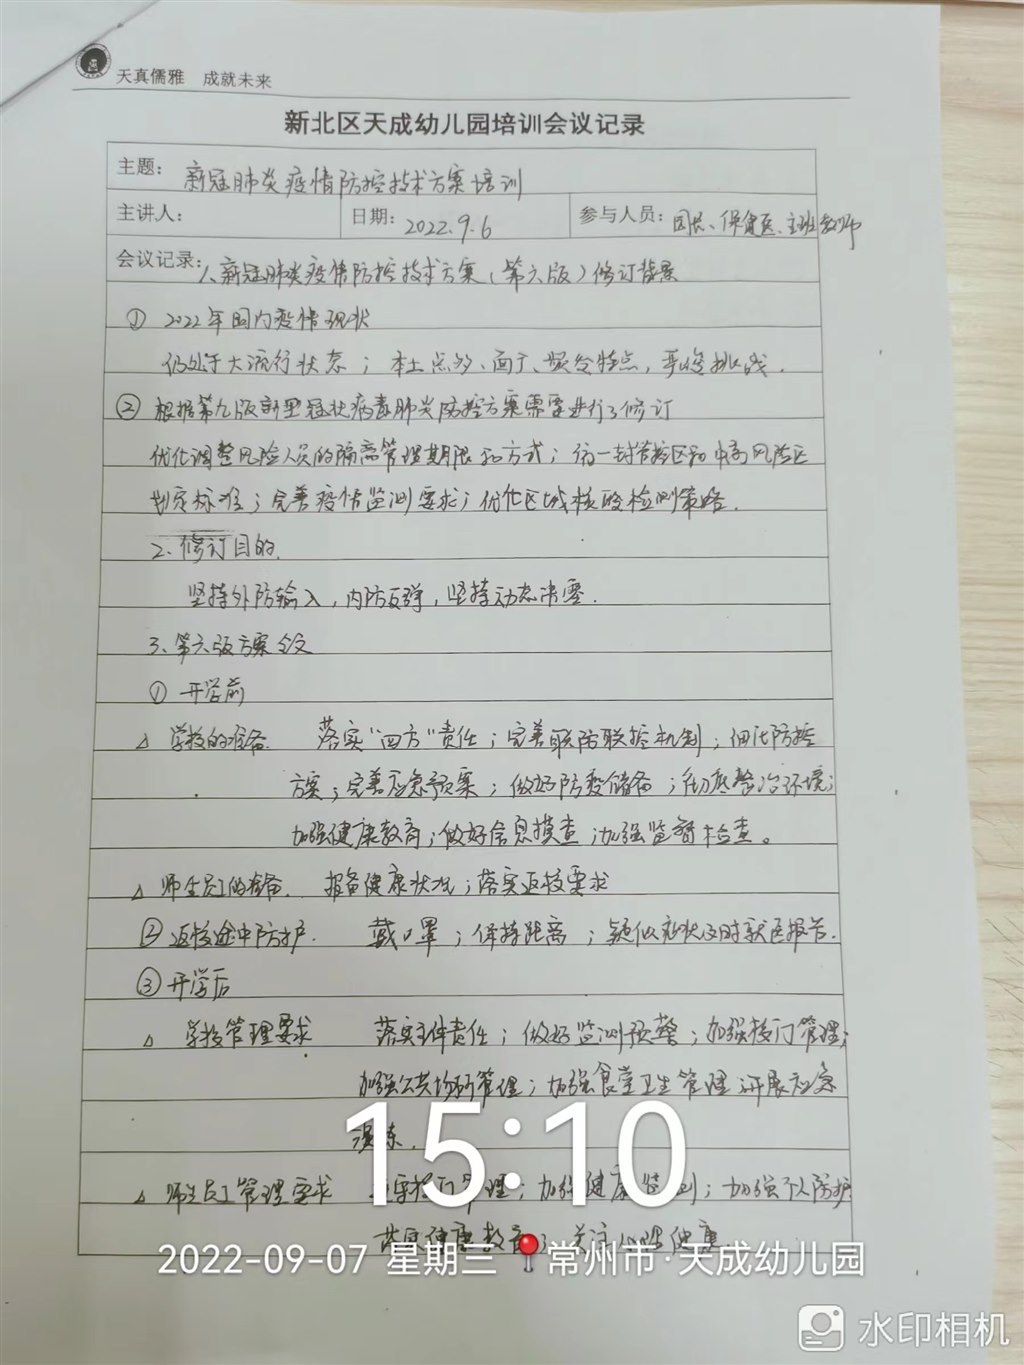 天真儒雅 成就未来
新北区天成幼儿园培训会议记录
主题： 新冠肺炎疫情防控技术方案培训
主讲人： 日期： 2022.9.6 参与人员： 园长、保健医、主班教师
会议记录： 1、新冠肺炎疫情防控技术方案（第六版）修订背景
① 2022年国内疫情现状
仍处于大流行状态；本土点多、面广、频发特点，严峻挑战.
② 根据第九版新型冠状病毒肺炎防控方案需要进行了修订
优化调整风险人员的隔离管理期限和方式；统一封管控区和中高风险区
划定标准；完善疫情监测要求；优化区域核酸检测策略.
2、修订目的.
坚持外防输入，内防反弹，坚持动态清零.
3、第六版方案全文
① 开学前
△ 学校的准备. 落实“四方”责任；完善联防联控机制；细化防控
方案；完善应急预案；做好防疫储备；彻底整治环境；
加强健康教育；做好信息摸查；加强监督检查。
△ 师生员工的准备. 报备健康状况；落实返校要求
② 返校途中防护. 戴口罩；保持距离；疑似症状及时就医报告.
③ 开学后
△ 学校管理要求 落实主体责任；做好监测预警；加强校门管理；
加强公共场所管理；加强食堂卫生管理；开展应急
演练.
△ 师生员工管理要求 管理；加强健康监测；加强个人防护
健康教育；关注心理健康.
15:10
2022-09-07 星期三 常州市·天成幼儿园
水印相机